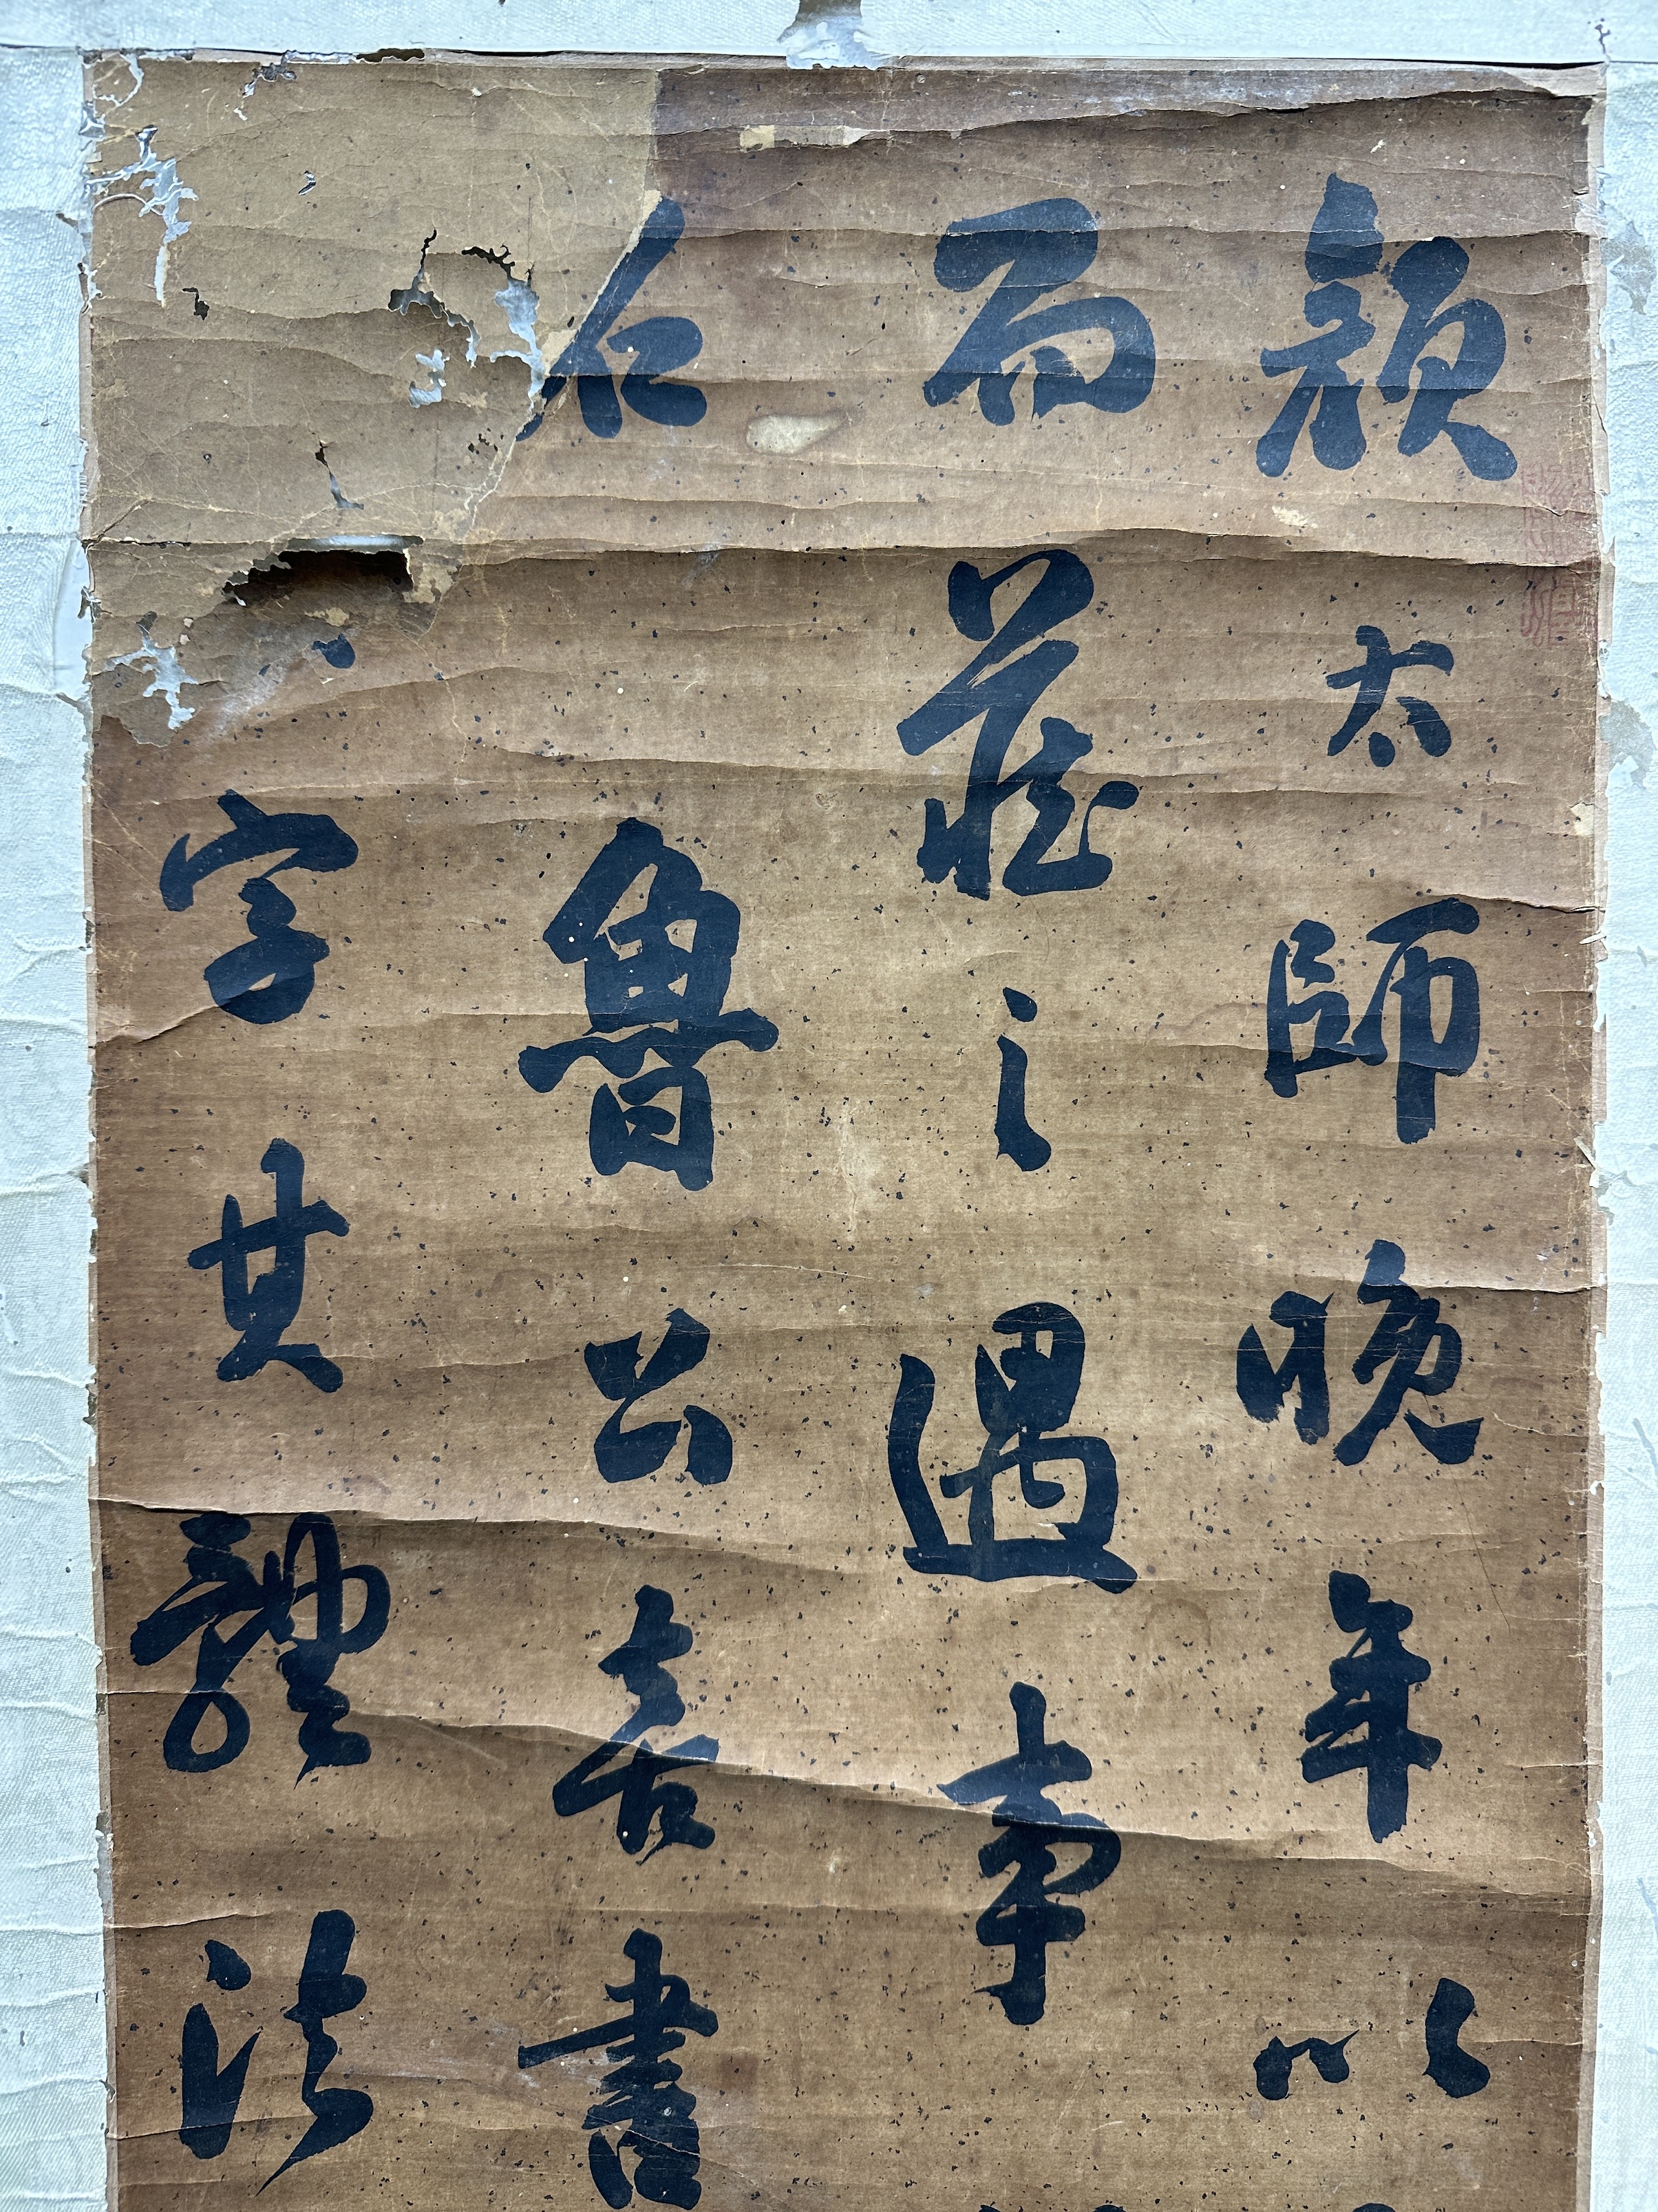 顏太師晚年以
而藏之遇事
石魯公喜書
字其體法